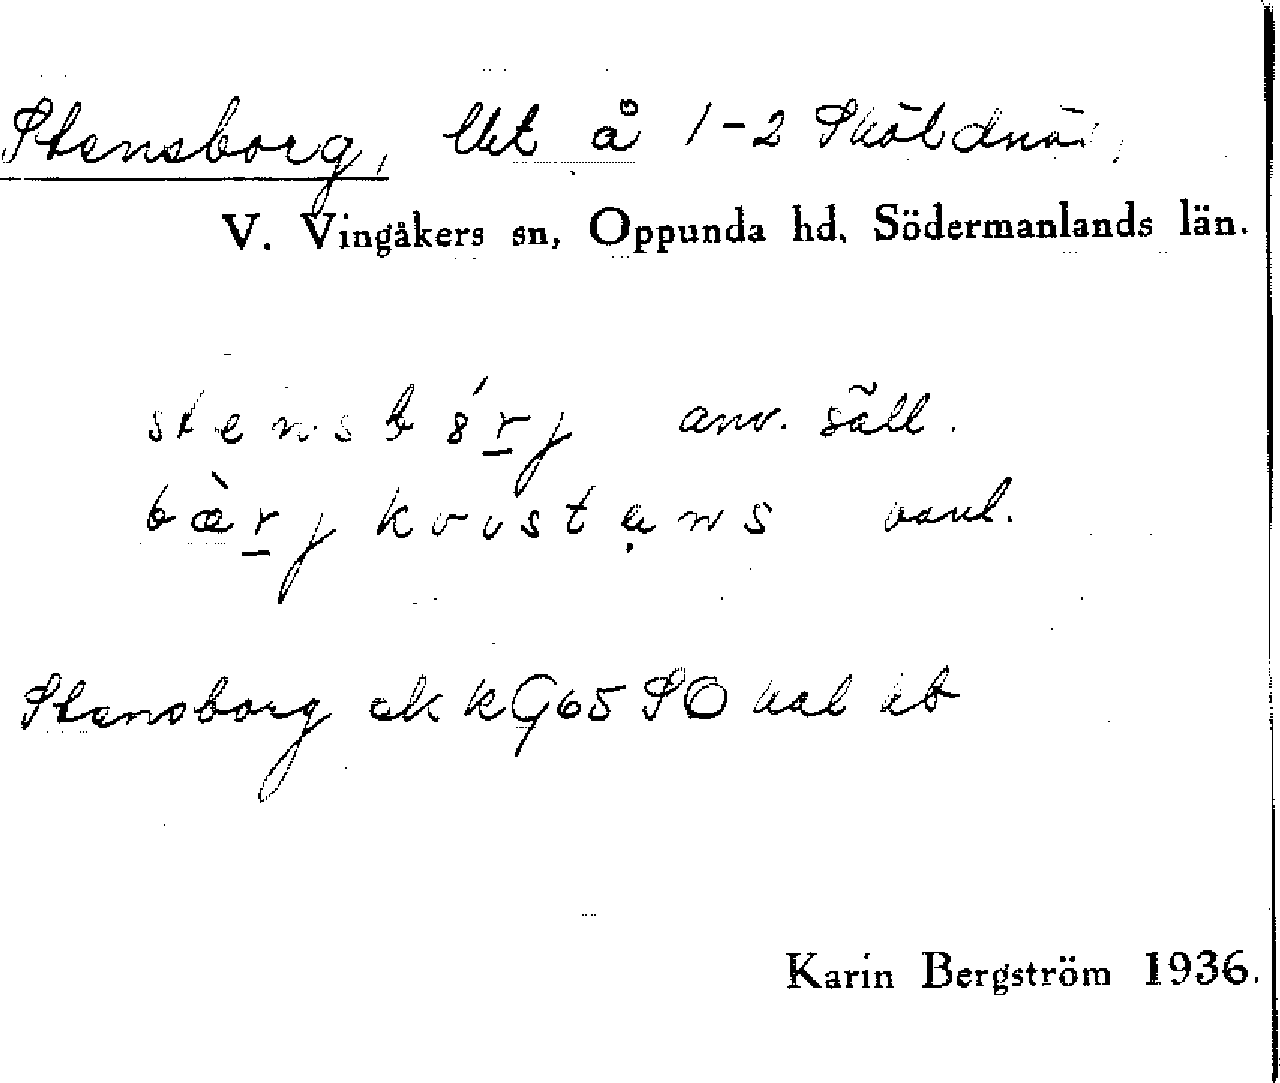 Stensborg, lht å 1-2 Sköldnäs,
V. Vingåkers sn, Oppunda hd, Södermanlands län.
anv. säll.
bæ̀rj kvistəns vanl.
Stensborg ek kG65SO
Karin Bergström 1936.